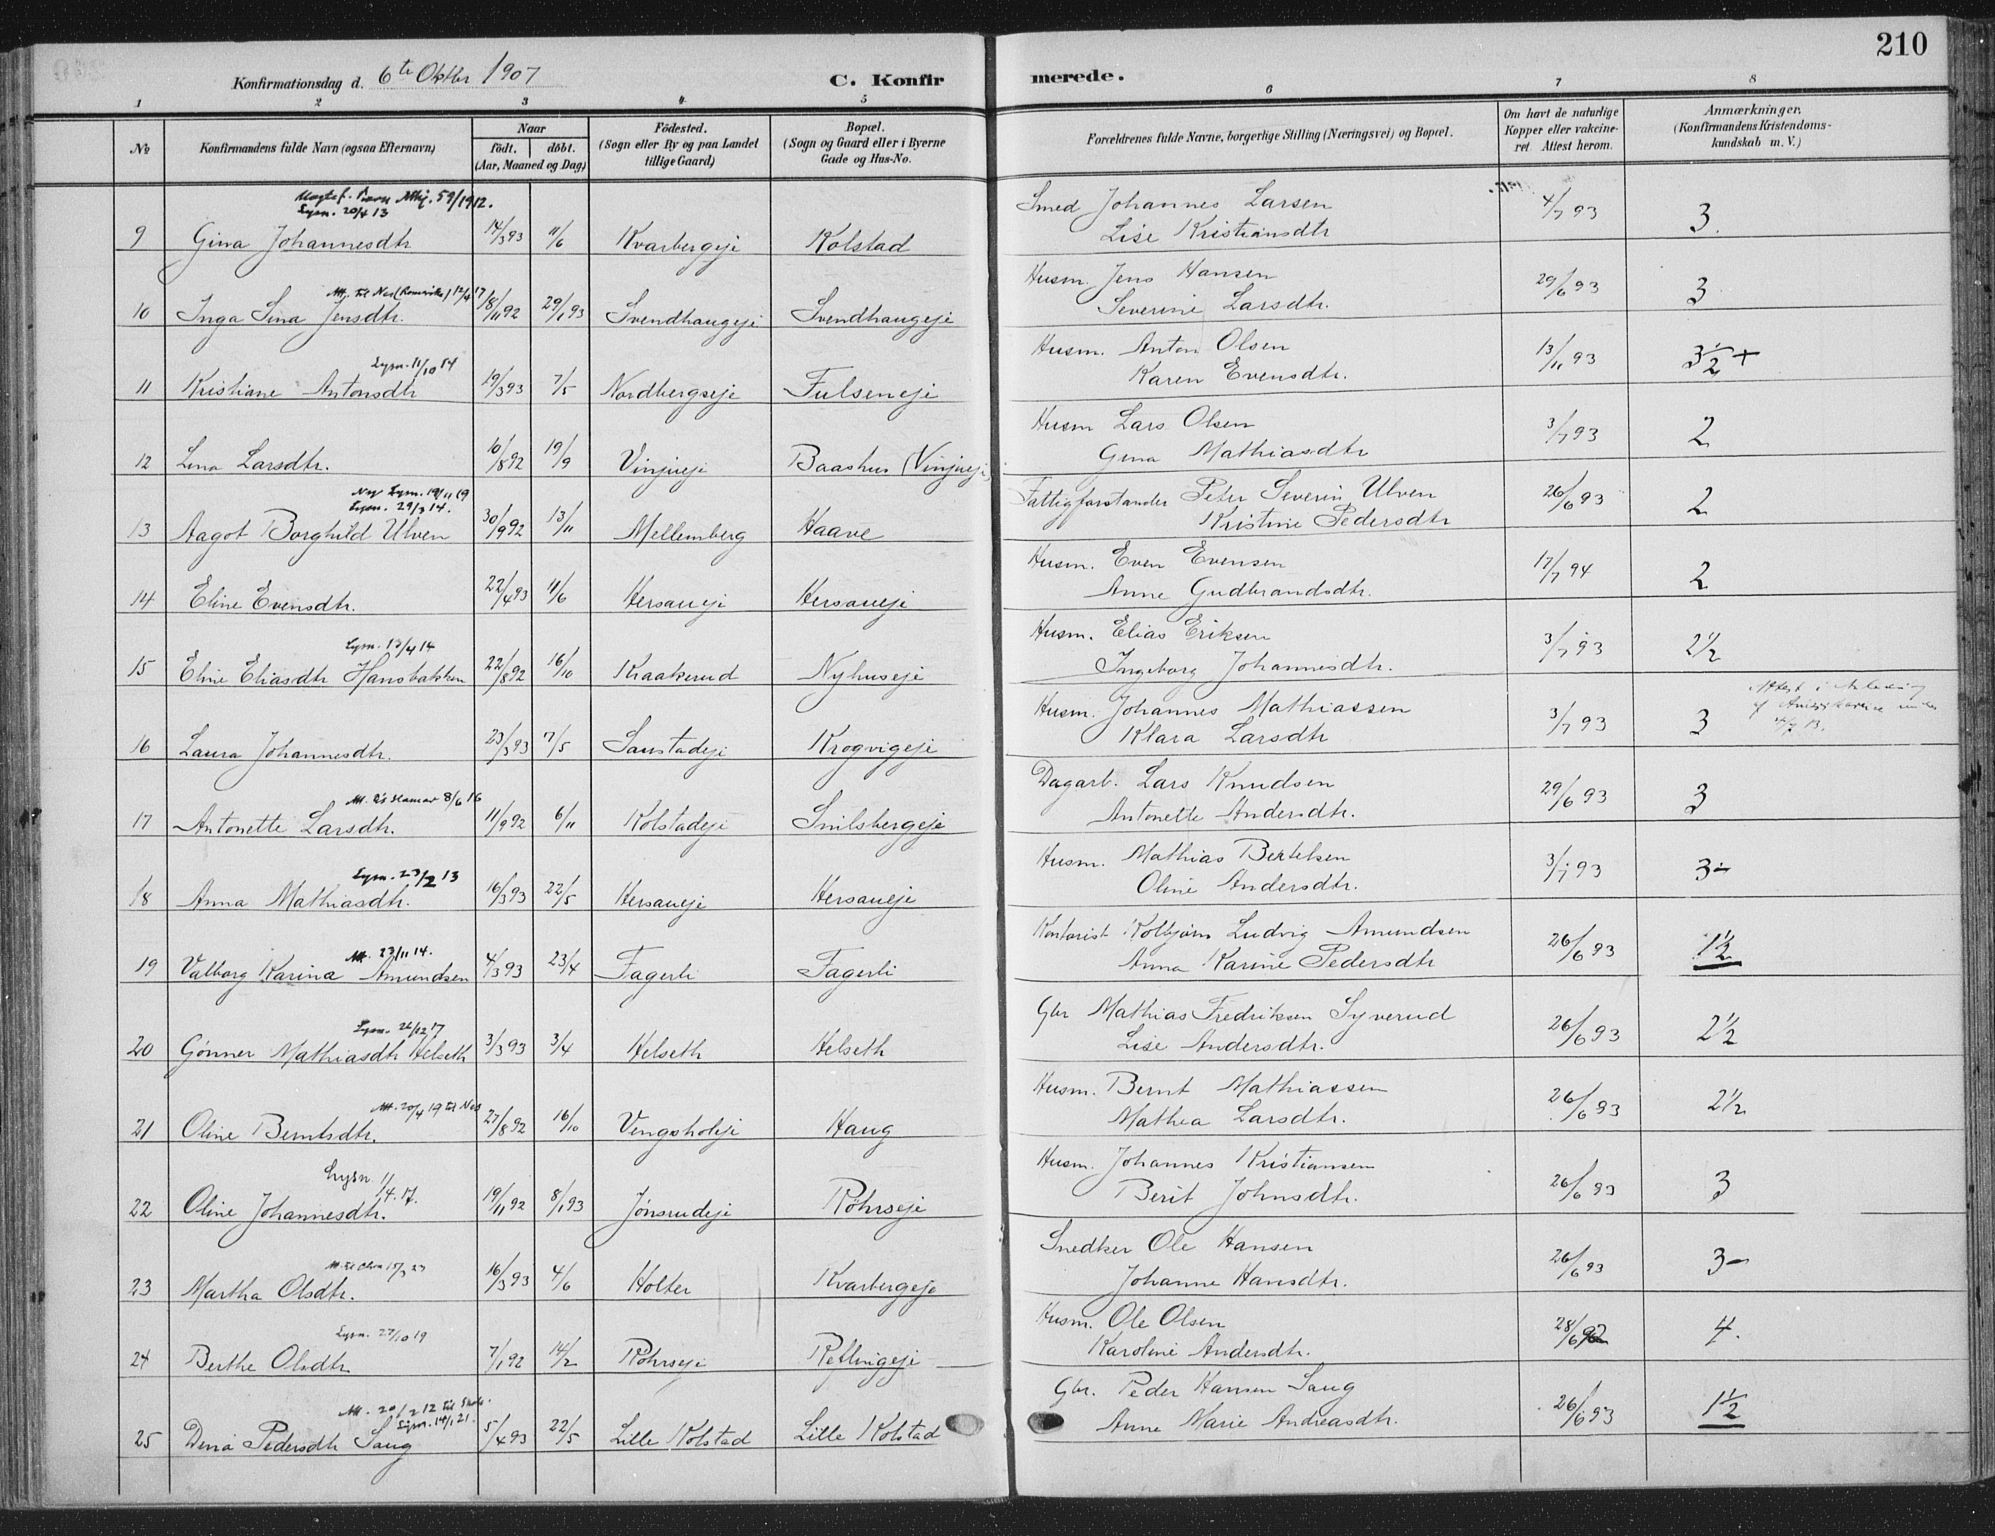 210
Konfirmationsdag d. 6te Oktbr 1907 C. Konfirmerede.
1 2 3 4 5 6 7 8
No Konfirmandens fulde Navn (ogsaa Efternavn) Naar født. døbt. (Aar, Maaned og Dag) Fødested. (Sogn eller By og paa Landet tillige Gaard) Bopæl. (Sogn og Gaard eller i Byerne Gade og Hus-No. Forældrenes fulde Navne, borgerlige Stilling (Næringsvei) og Bopæl. Om havt de naturlige Kopper eller vakcineret Attest herom. Anmærkninger, (Konfirmandens Kristendomskundskab m. V.)
59/1912.
Lysn. 20/4 13
9 Gina Johannesdtr 14/3 93 11/6 Kvarbergeje Kolstad Smed Johannes Larsen 4/7 93 3
Lise Kristiansdtr
Att. til Nes (Romerike) 12/4 17
10 Inga Sina Jensdtr. 18/11 92 29/1 93 Svendhaugeje Svendhaugeje Husm. Jens Hansen 29/6 93 3
Severine Larsdtr.
Lysn. 11/10 14
11 Kristiane Antonsdtr 19/3 93 7/5 Nordbergseje Fulseneje Husm. Anton Olsen 13/11 93 3 1/2 +
Karen Evensdtr.
12 Lina Larsdtr. 10/8 92 19/9 Vinjueje Baashus (Vinjueje) Husm Lars Olsen 3/7 93 2
Gina Mathiasdtr
Ny Lysn. 19/11 19
Lysn. 29/3 14.
13 Aagot Borghild Ulven 30/9 92 13/11 Mellemberg Haave Fattigforstander Peter Severin Ulven 26/6 93 2
Kristine Pedersdtr
14 Eline Evensdtr. 22/4 93 11/6 Hersaueje Hersaueje Husm. Even Evensen 17/7 94 2
Anne Gudbrandsdtr.
Lysn. 13/4 14
15 Eline Eliasdtr Hansbakken 22/8 92 16/10 Kraakerud Nyhuseje Husm. Elias Eriksen 3/7 93 2 1/2
Ingeborg Johannesdtr.
16 Laura Johannesdtr. 23/3 93 7/5 Saustadeje Krogvigeje Husm. Johannes Mathiassen 3/7 93 3
Klara Larsdtr
Att. til Hamar 8/6 16
17 Antonette Larsdtr. 11/9 92 6/11 Kolstadeje Snilsbergeje Dagarb. Lars Knudsen 29/6 93 3
Antonette Andersdtr.
Lysn. 23/2 13
18 Anna Mathiasdtr. 16/3 93 22/5 Hersaueje Hersaueje Husm. Mathias Bertelsen 3/7 93 3-
Oline Andersdtr.
Att. 23/11 14.
19 Valborg Karina Amundsen 4/3 93 23/4 Fagerli Fagerli Kontorist Kolbjørn Ludvig Amundsen 26/6 93 1 1/2
Anna Karine Pedersdtr
Lysn. 26/12 17
20 Gønner Mathiasdtr Helseth 3/3 93 3/4 Helseth Helseth Gbr Mathias Fredriksen Syverud 26/6 93 2 1/2
Lise Andersdtr.
Att. 20/4 19 til Nes
21 Oline Berntsdtr. 27/8 92 16/10 Vengsholeje Haug Husm. Bernt Mathiassen 26/6 93 2 1/2
Mathea Larsdtr.
Lysn. 1/4. 17.
22 Oline Johannesdtr. 19/11 92 8/1 93 Jønsrudeje Røhrseje Husm. Johannes Kristiansen 26/6 93 3
Berit Johnsdtr.
23 Martha Olsdtr. 16/3 93 4/6 Holter Kvarbergeje Snedker Ole Hansen 26/6 93 3-
Johanne Hansdtr.
Lysn. 27/10 19
24 Berthe Olsdtr 7/1 92 14/2 Røhrseje Reflingeje Husm. Ole Olsen 28/6 92 4.
Karoline Andersdtr.
Lysn. 14/1 21.
25 Dina Pedersdtr Saug 5/4 93 22/5 Lille Kolstad Lille Kolstad Gbr. Peder Hansen Saug 26/6 93 1 1/2
Anne Marie Andreasdtr.